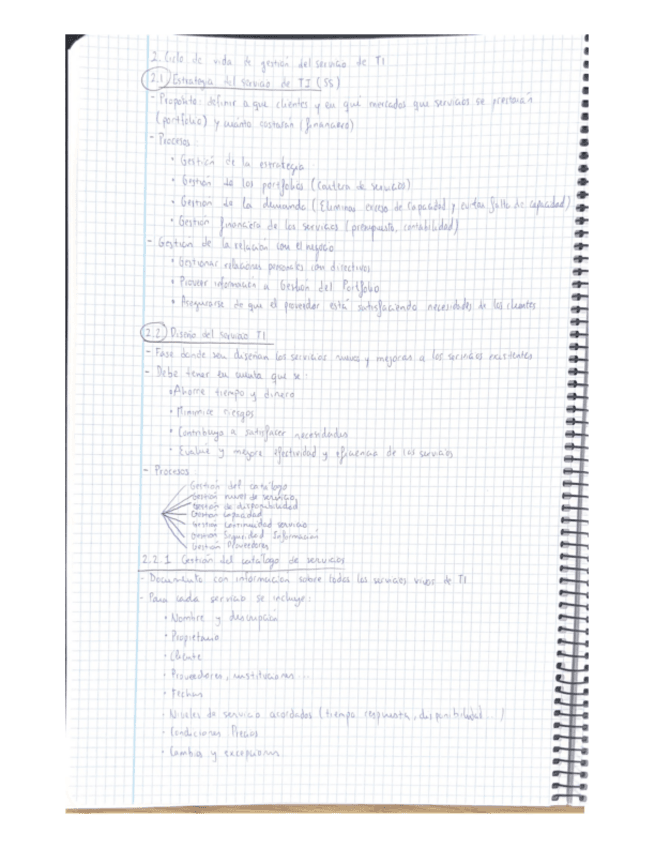 2. Ciclo de vida de gestión del servicio de TI
2.1 Estrategia del servicio de TI (SS)
- Propósito: definir a que clientes y en qué mercados que servicios se prestarán
(portfolio) y cuánto costarán (financiero)
- Procesos:
• Gestión de la estrategia
• Gestión de los portfolios (Cartera de servicios)
• Gestión de la demanda (Eliminar exceso de capacidad y evitar falta de capacidad)
• Gestión financiera de los servicios (presupuesto, contabilidad)
- Gestión de la relación con el negocio
• Gestionar relaciones personales con directivos
• Proveer información a Gestión del Portfolio
• Asegurarse de que el proveedor está satisfaciendo necesidades de los clientes
2.2 Diseño del servicio TI
- Fase donde se diseñan los servicios nuevos y mejoras a los servicios existentes
- Debe tener en cuenta que se:
• Ahorre tiempo y dinero
• Minimice riesgos
• Contribuya a satisfacer necesidades
• Evalue y mejore efectividad y eficiencia de los servicios
- Procesos
Gestión del catálogo
Gestión nivel de servicio
Gestión de disponibilidad
Gestión Capacidad
Gestión Continuidad servicio
Gestión Seguridad Información
Gestión Proveedores
2.2.1 Gestión del catálogo de servicios
- Documento con información sobre todos los servicios vivos de TI
- Para cada servicio se incluye:
• Nombre y descripción
• Propietario
• Cliente
• Proveedores, instituciones...
• Fechas
• Niveles de servicio acordados (tiempo respuesta, disponibilidad...)
• Condiciones Precios
• Cambios y excepciones